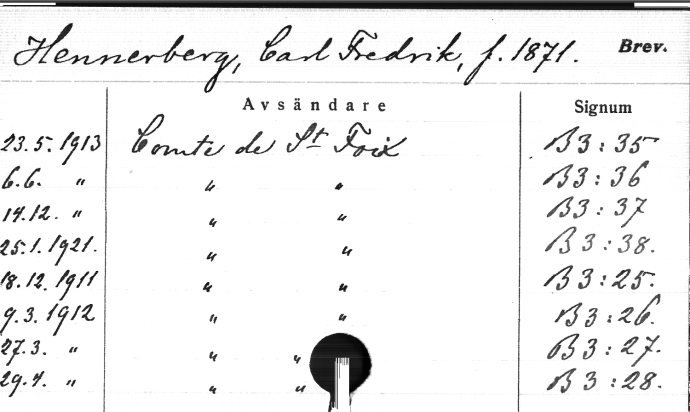 Hennerberg, Carl Fredrik, f. 1871. Brev.
Avsändare Signum
23.5.1913 Comte de St Foix B3:35
6.6. " " " B3:36
14.12. " " " B3:37
25.1.1921. " " B3:38.
18.12.1911 " " B3:25.
9.3.1912 " " B3:26.
27.3. " " " B3:27.
29.4. " " " B3:28.